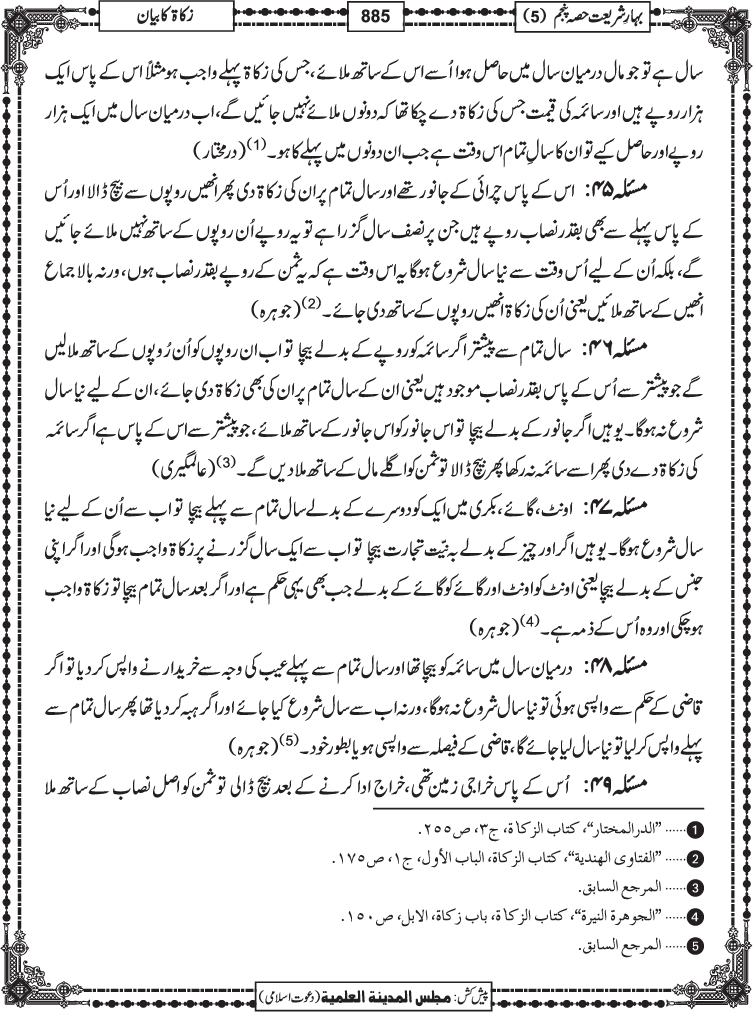 بہارِ شریعت حصہ پنجم (5)
885
زکاۃ کا بیان
سال ہے تو جو مال درمیان سال میں حاصل ہوا اُسے اس کے ساتھ ملائے، جس کی زکاۃ پہلے واجب ہو مثلاً اس کے پاس ایک
ہزار روپے ہیں اور سائمہ کی قیمت جس کی زکاۃ دے چکا تھا کہ دونوں ملائے نہیں جائیں گے، اب درمیان سال میں ایک ہزار
روپے اور حاصل کیے تو ان کا سالِ تمام اس وقت ہے جب ان دونوں میں پہلے کا ہو۔(1) (درمختار)
مسئلہ ۴۵: اس کے پاس چرائی کے جانور تھے اور سال تمام پر ان کی زکاۃ دی پھر انھیں روپوں سے بیچ ڈالا اور اُس
کے پاس پہلے سے بھی بقدر نصاب روپے ہیں جن پر نصف سال گزرا ہے تو یہ روپے اُن روپوں کے ساتھ نہیں ملائے جائیں
گے، بلکہ اُن کے لیے اُس وقت سے نیا سال شروع ہوگا یہ اس وقت ہے کہ یہ ثمن کے روپے بقدر نصاب ہوں، ورنہ بالاجماع
انھیں کے ساتھ ملائیں یعنی اُن کی زکاۃ انھیں روپوں کے ساتھ دی جائے۔(2) (جوہرہ)
مسئلہ ۴۶: سال تمام سے پیشتر اگر سائمہ کو روپے کے بدلے بیچا تو اب ان روپوں کو اُن رُوپوں کے ساتھ ملا لیں
گے جو پیشتر سے اُس کے پاس بقدر نصاب موجود ہیں یعنی ان کے سال تمام پر ان کی بھی زکاۃ دی جائے، ان کے لیے نیا سال
شروع نہ ہوگا۔ یوہیں اگر جانور کے بدلے بیچا تو اس جانور کو اس جانور کے ساتھ ملائے، جو پیشتر سے اس کے پاس ہے اگر سائمہ
کی زکاۃ دے دی پھر اسے سائمہ نہ رکھا پھر بیچ ڈالا تو ثمن کو اگلے مال کے ساتھ ملا دیں گے۔(3) (عالمگیری)
مسئلہ ۴۷: اونٹ، گائے، بکری میں ایک کو دوسرے کے بدلے سال تمام سے پہلے بیچا تو اب سے اُن کے لیے نیا
سال شروع ہوگا۔ یوہیں اگر اور چیز کے بدلے بہ نیّت تجارت بیچا تو اب سے ایک سال گزرنے پر زکاۃ واجب ہوگی اور اگر اپنی
جنس کے بدلے بیچا یعنی اونٹ کو اونٹ اور گائے کو گائے کے بدلے جب بھی یہی حکم ہے اور اگر بعد سال تمام بیچا تو زکاۃ واجب
ہوچکی اور وہ اُس کے ذمہ ہے۔(4) (جوہرہ)
مسئلہ ۴۸: درمیان سال میں سائمہ کو بیچا تھا اور سال تمام سے پہلے عیب کی وجہ سے خریدار نے واپس کر دیا تو اگر
قاضی کے حکم سے واپسی ہوئی تو نیا سال شروع نہ ہوگا، ورنہ اب سے سال شروع کیا جائے اور اگر ہبہ کر دیا تھا پھر سال تمام سے
پہلے واپس کر لیا تو نیا سال لیا جائے گا، قاضی کے فیصلہ سے واپسی ہو یا بطور خود۔(5) (جوہرہ)
مسئلہ ۴۹: اُس کے پاس خراجی زمین تھی، خراج ادا کرنے کے بعد بیچ ڈالی تو ثمن کو اصل نصاب کے ساتھ ملا
1...... ”الدرالمختار“، کتاب الزکاۃ، ج۳، ص۲۵۵.
2...... ”الفتاوی الهندیة“، کتاب الزکاة، الباب الأول، ج۱، ص۱۷۵.
3...... المرجع السابق.
4...... ”الجوهرة النیرة“، کتاب الزکاة، باب زکاة، الابل، ص۱۵۰.
5...... المرجع السابق.
پیش کش: مجلس المدینة العلمیة (دعوتِ اسلامی)